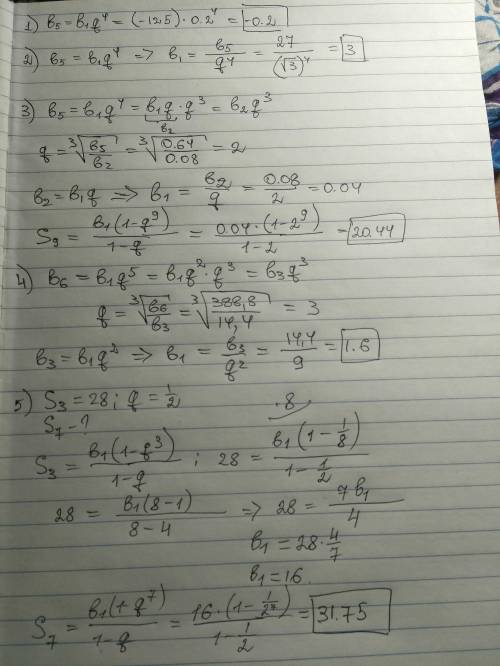 1) в₅ = в₁q⁴ = (-125) · 0.2⁴ = -0.2
2) в₅ = в₁q⁴ => в₁ = в₅/q⁴ = 27/(√3)⁴ = 3
3) в₅ = в₁q⁴ = в₁q · q³ = в₂q³
в₂
q = ∛(в₅/в₂) = ∛(0.64/0.08) = 2
в₂ = в₁q => в₁ = в₂/q = 0.08/2 = 0.04
S₉ = в₁(1-q⁹)/(1-q) = 0.04 · (1-2⁹)/(1-2) = 20.44
4) в₆ = в₁q⁵ = в₁q² · q³ = в₃q³
q = ∛(в₆/в₃) = ∛(388,8/14,4) = 3
в₃ = в₁q² => в₁ = в₃/q² = 14,4/9 = 1.6
5) S₃ = 28; q = 1/2
S₇ - ?
·8
S₃ = в₁(1-q³)/(1-q) ; 28 = в₁(1-1/8)/(1-1/2)
28 = в₁(8-1)/(8-4) => 28 = 7в₁/4
в₁ = 28 · 4/7
в₁ = 16
S₇ = в₁(1-q⁷)/(1-q) = 16 · (1-1/2⁷)/(1-1/2) = 31.75